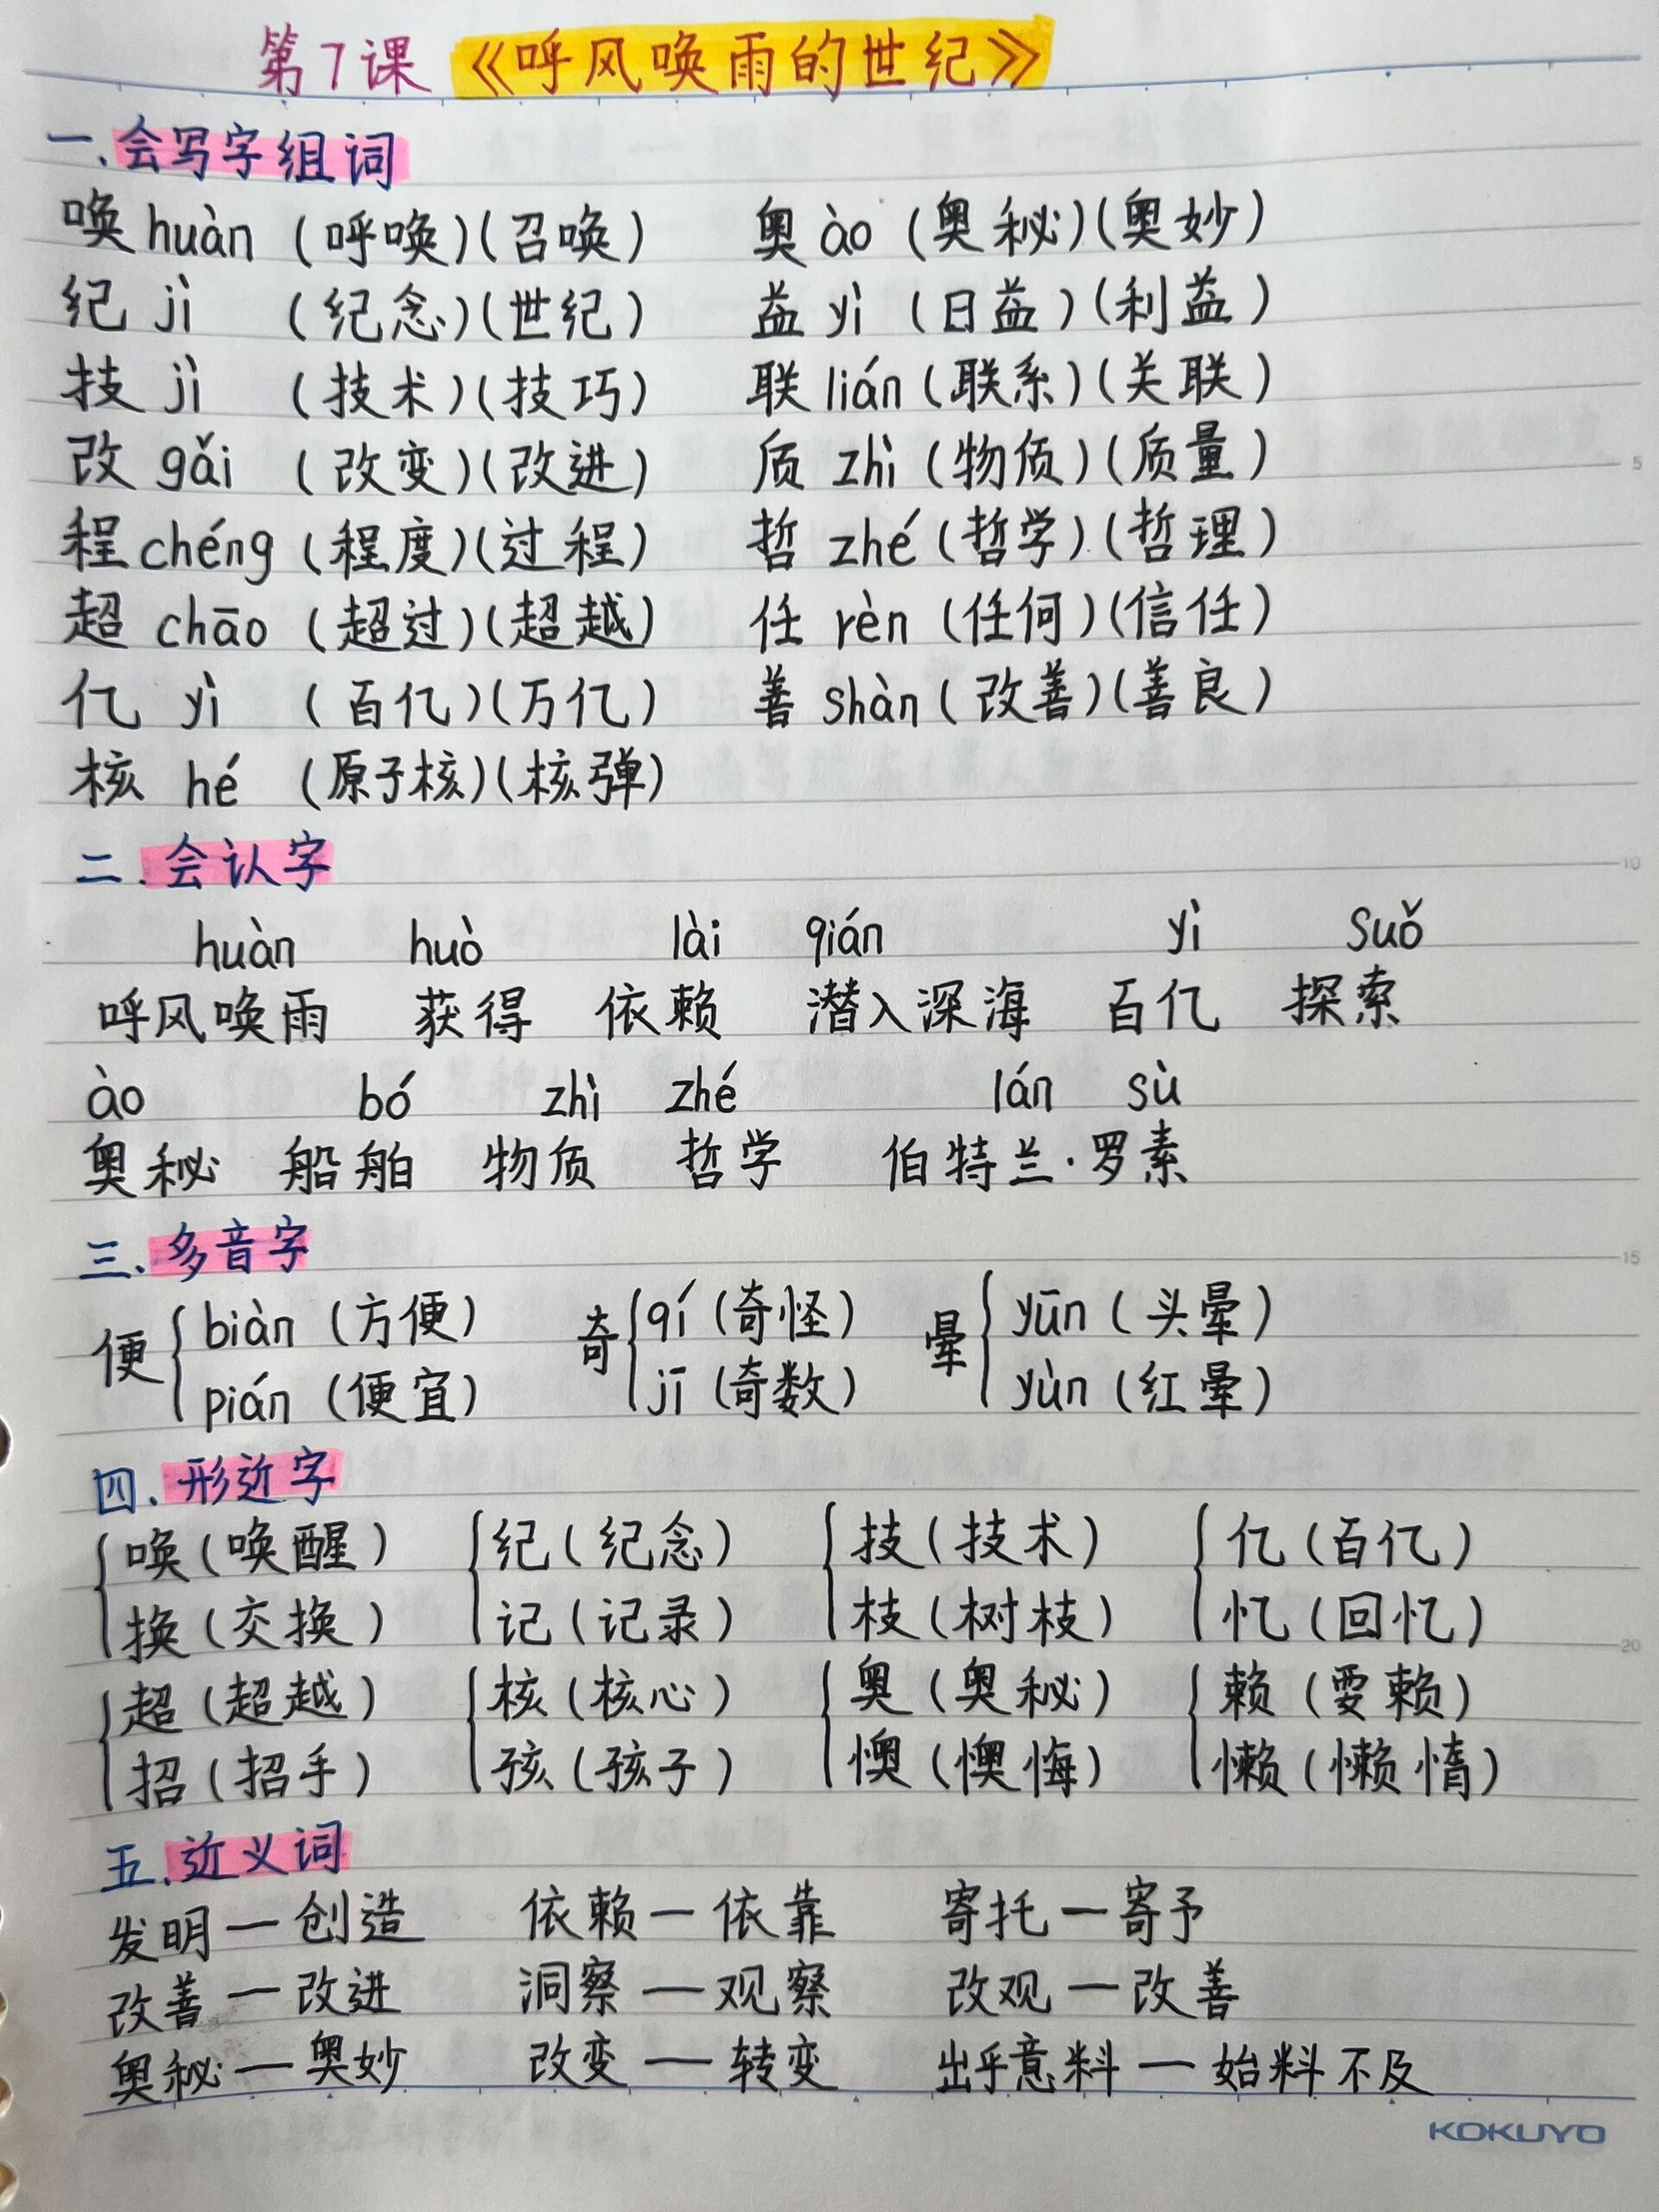 第7课《呼风唤雨的世纪》
一.会写字组词
唤 huàn (呼唤)(召唤) 奥 ào (奥秘)(奥妙)
纪 jì (纪念)(世纪) 益 yì (日益)(利益)
技 jì (技术)(技巧) 联 lián (联系)(关联)
改 gǎi (改变)(改进) 质 zhì (物质)(质量)
程 chéng (程度)(过程) 哲 zhé (哲学)(哲理)
超 chāo (超过)(超越) 任 rèn (任何)(信任)
亿 yì (百亿)(万亿) 善 shàn (改善)(善良)
核 hé (原子核)(核弹)
二.会认字
huàn huò lài qián yì suǒ
呼风唤雨 获得 依赖 潜入深海 百亿 探索
ào bó zhì zhé lán sù
奥秘 船舶 物质 哲学 伯特兰·罗素
三.多音字
便 { biàn (方便) 奇 { qí (奇怪) 晕 { yūn (头晕)
pián (便宜) jī (奇数) yùn (红晕)
四.形近字
{ 唤(唤醒) { 纪(纪念) { 技(技术) { 亿(百亿)
换(交换) 记(记录) 枝(树枝) 忆(回忆)
{ 超(超越) { 核(核心) { 奥(奥秘) { 赖(耍赖)
招(招手) 孩(孩子) 懊(懊悔) 懒(懒惰)
五.近义词
发明—创造 依赖—依靠 寄托—寄予
改善—改进 洞察—观察 改观—改善
奥秘—奥妙 改变—转变 出乎意料—始料不及
5
10
15
20
KOKUYO